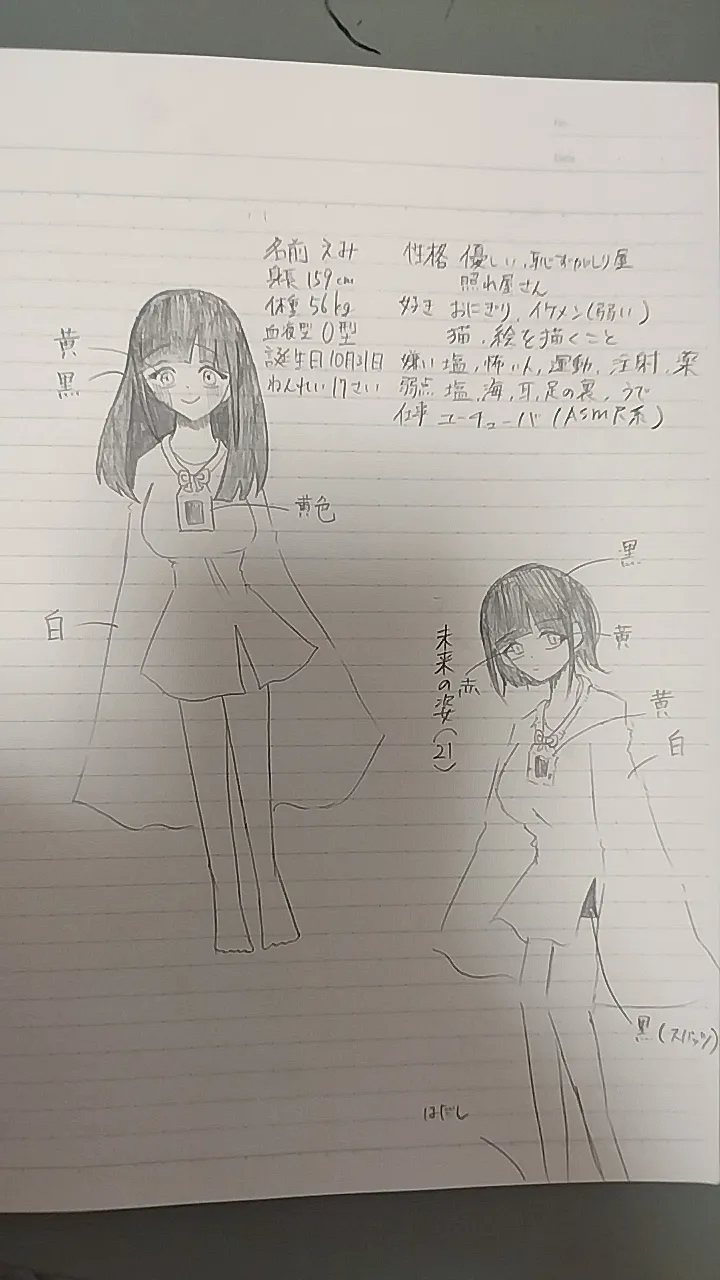 名前 えみ
身長 159cm
体重 56kg
血液型 O型
誕生日 10月31日
ねんれい 17さい
性格 優しい、恥ずかしり屋
照れ屋さん
好き おにぎり、イケメン(弱い)
猫、絵を描くこと
嫌い 塩、怖い人、運動、注射、薬
弱点 塩、海、耳、足の裏、うで
仕事 ユーチューバ (ASMR系)
黄
黒
黄色
白
未来の姿(21)
黒
黄
赤
黄
白
黒(スパッツ)
はだし